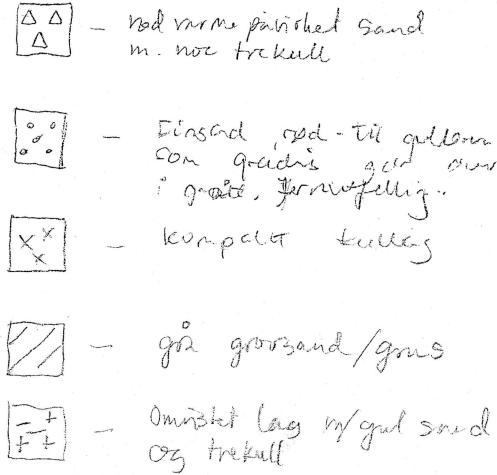 – rød varme påvirket sand
m. noe trekull
– Finsand, rød - til gulbrun
som gradvis går over
i grått, Jernutfelling.
– kompakt kullag
– grå grovsand/grus
– Omrotet lag m/gul sand
og trekull